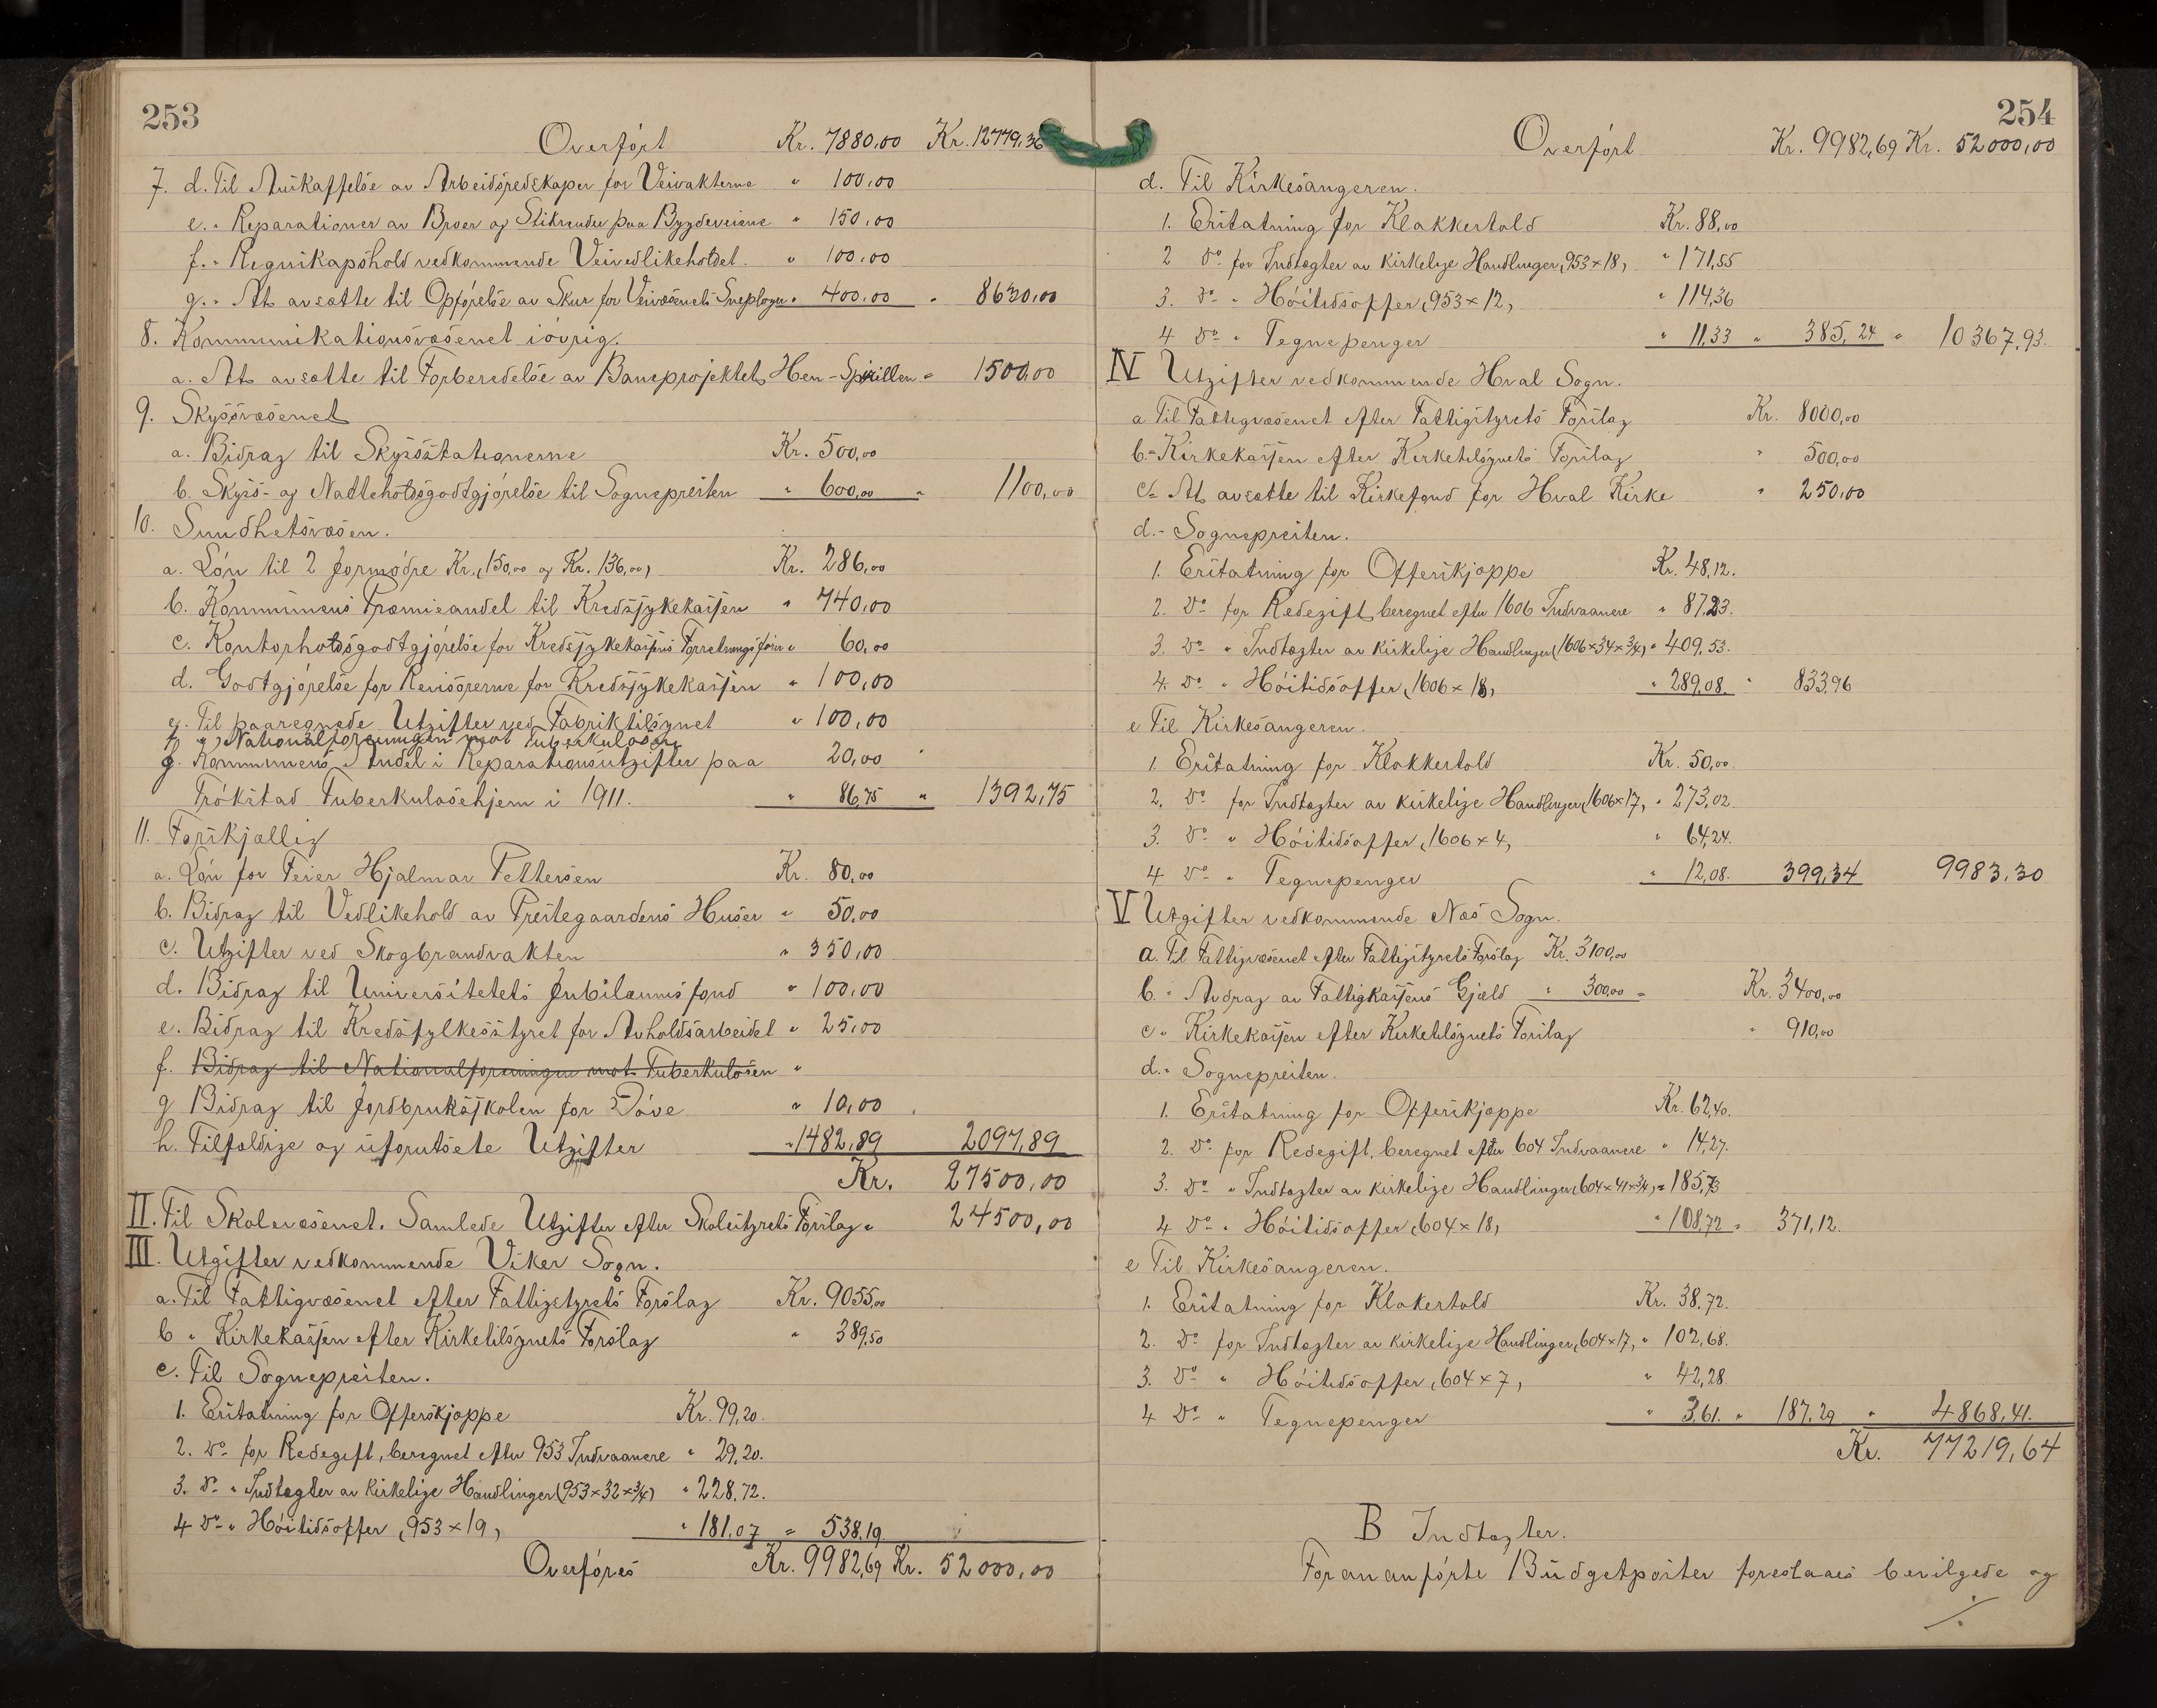 253
Overført Kr. 7880,00 Kr. 12779,36
7. d. Til Anskaffelse av Arbeidsredskaper for Veivakterne " 100,00
e. " Reparationer av Broer og Stikrender paa Bygdeveiene " 150,00
f. " Regnskapshold vedkommende Veivedlikeholdet. " 100,00
g. " At avsætte til Opførelse av Skur for Veivæsenets Sneploger " 400,00 " 8630,00
8. Kommunikationsvæsenet iøvrig.
a. At avsætte til Forberedelse av Baneprojektet Hen-Sperillen " 1500,00
9. Skyssvæsenet
a. Bidrag til Skyssstationerne Kr. 500,00
b. Skyss- og Natteholdsgodtgjørelse til Sognepresten " 600,00 " 1100,00
10. Sundhetsvæsen.
a. Løn til 2 Jormødre Kr. (150,00 og Kr. 136,00) Kr. 286,00
b. Kommunens Præmieandel til Kredssykekassen " 740,00
c. Kontorholdsgodtgjørelse for Kredssykekassens Forretningsfører " 60,00
d. Godtgjørelse for Revisorerne for Kredssykekassen " 100,00
e. Til paaregnede Utgifter ved Fabriktilsynet " 100,00
f) " Nationalforeningen mot Tuberkulosen
g. Kommunens Andel i Reparationsutgifter paa 20,00 "
Trøkstad Tuberkulosehjem i 1911. " 86,75 " 1392,75
11. Forskjællig
a. Løn for Feier Hjalmar Pettersen Kr. 80,00
b. Bidrag til Vedlikehold av Prestegaardens Huser " 50,00
c. Utgifter ved Skogbrandvakten " 350,00
d. Bidrag til Universitetets Jubilæumsfond " 100,00
e. Bidrag til Kredsfylkesstyret for Avholdsarbeidet " 25,00
f. Bidrag til Nationalforeningen mot Tuberkulosen "
g Bidrag til Jordbruksskolen for Døve " 10,00
h. Tilfældige og uforutsete Utgifter " 1482,89 2097,89
Kr. 27500,00
II. Til Skolevæsenet. Samlede Utgifter efter Skolestyrets Forslag " 24500,00
III. Utgifter vedkommende Viker Sogn.
a. Til Fattigvæsenet efter Fattigstyrets Forslag Kr. 9055,00
b " Kirkekassen efter Kirketilsynets Forslag " 389,50
c. Til Sognepresten.
1. Erstatning for Offerskjæppe Kr. 99,20.
2. Do for Redegift, beregnet efter 953 Indvaanere " 29,20.
3. Do " Indtægter av kirkelige Handlinger (953×32×3/4) " 228,72.
4 Do " Høitidsoffer (953×19) " 181,07 " 538,19
Overføres Kr. 9982,69 Kr. 52000,00
254
Overført Kr. 9982,69 Kr. 52000,00
d. Til Kirkesangeren.
1. Erstatning for Klokkertold Kr. 88,00
2 Do for Indtægter av kirkelige Handlinger (953×18) " 171,55
3. Do " Høitidsoffer (953×12) " 114,36
4 Do " Tegnepenger " 11,33 " 385,24 " 10367,93.
IV Utgifter vedkommende Hval Sogn.
a Til Fattigvæsenet efter Fattigstyrets Forslag Kr. 8000,00
b. " Kirkekassen efter Kirketilsynets Forslag " 500,00
c. " At avsætte til Kirkefond for Hval Kirke " 250,00
d. " Sognepresten.
1. Erstatning for Offerskjæppe Kr. 48,12.
2. Do for Redegift, beregnet efter 1606 Indvaanere " 87,23.
3. Do " Indtægter av kirkelige Handlinger (1606×34×3/4) " 409,53.
4. Do " Høitidsoffer (1606×18) " 289,08. " 833,96
e Til Kirkesangeren.
1. Erstatning for Klokkertold Kr. 50,00.
2. Do for Indtægter av kirkelige Handlinger (1606×17) " 273,02.
3. Do " Høitidsoffer (1606×4) " 64,24.
4 Do " Tegnepenger " 12,08. 399,34 9983,30
V Utgifter vedkommende Næs Sogn.
a. Til Fattigvæsenet efter Fattigstyrets Forslag Kr. 3100,00
b. " Avdrag av Fattigkassens Gjæld " 300,00 " Kr. 3400,00
c " Kirkekassen efter Kirketilsynets Forslag " 910,00
d. " Sognepresten.
1. Erstatning for Offerskjæppe Kr. 62,40.
2. Do for Redegift, beregnet efter 604 Indvaanere " 14,27.
3. Do " Indtægter av kirkelige Handlinger (604×41×3/4) " 185,73
4 Do " Høitidsoffer (604×18) " 108,72 " 371,12.
e Til Kirkesangeren.
1. Erstatning for Klokertold Kr. 38,72.
2. Do for Indtægter av kirkelige Handlinger (604×17) " 102,68.
3. Do " Høitidsoffer (604×7) " 42,28.
4 Do " Tegnepenger " 3,61. " 187,29 " 4868,41.
Kr. 77219,64
B Indtægter.
Forananførte Budgetposter foreslaaes bevilgede og
·/.